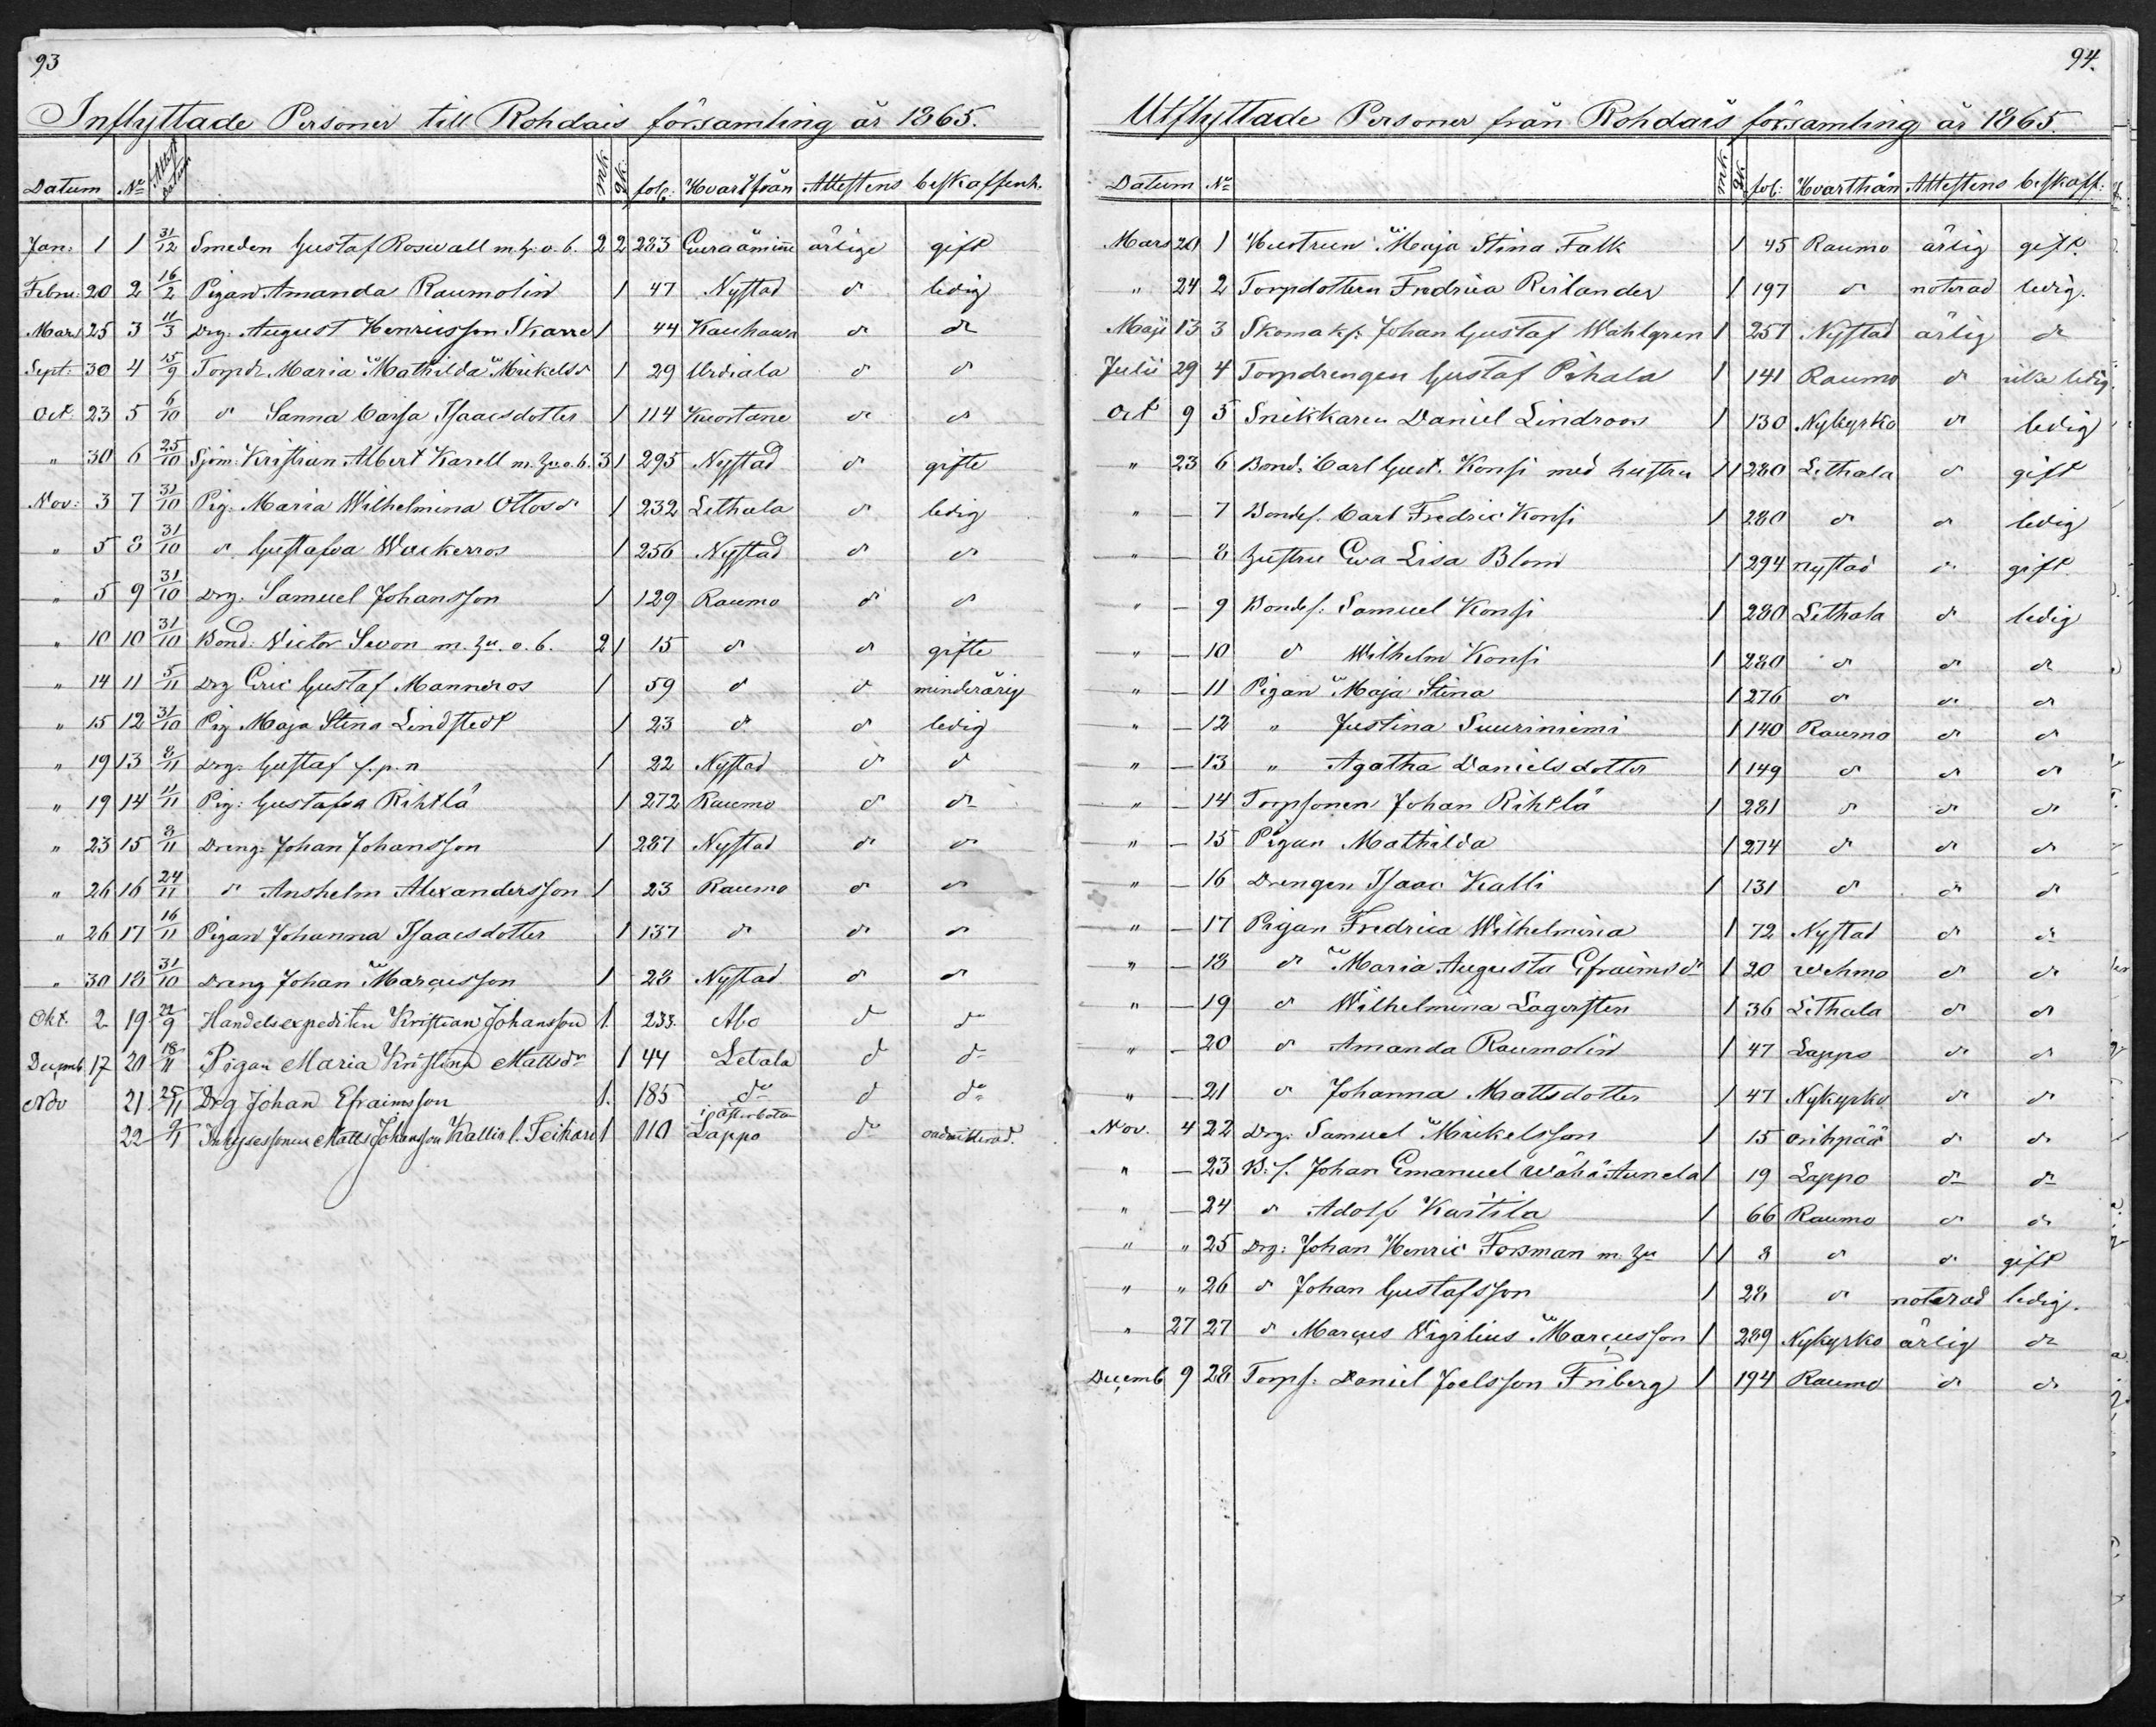 93
Inflyttade Personer till Rohdais församling år 1865.
Datum No Attest datum mk qk. fol: Hvarifrån Attestens beskaffenh.
Jan: 1 1 31/12 Smeden Gustaf Roswall m. h. o. b. 2 2 283 Euraåminne ärlige gift
Febru: 20 2 16/2 Pigan Amanda Raumolin 1 47 Nystad do ledig
Mars 25 3 11/3 Drg. August Henricsson Skarre 1 44 Kauhawa do do
Sept: 30 4 15/9 Torpdr. Maria Mathilda Mickelsd 1 29 Urdiala do do
Oct: 23 5 6/10 do Sanna Caisa Isaacsdotter 1 114 Kuortane do do
" 30 6 25/10 Sjöm: Kristian Albert Karell m. hu. o. b. 3 1 295 Nystad do gifte
Nov: 3 7 31/10 Pig. Maria Wilhelmina Ottosd 1 232 Lethala do ledig
" 5 8 31/10 do Gustafva Wackerros 1 256 Nystad do do
" 5 9 31/10 Drg. Samuel Johansson 1 129 Raumo do do
" 10 10 31/10 Bond: Victor Sevon m. hu. o. b. 2 1 15 do do gifte
" 14 11 5/11 Drg Eric Gustaf Manneros 1 59 do do minderårig
" 15 12 31/10 Pig Maja Stina Lindstedt 1 23 do do ledig
" 19 13 8/11 Drg. Gustaf s. p. n 1 22 Nystad do do
" 19 14 11/11 Pig: Gustafva Rihtlä 1 272 Raumo do do
" 23 15 8/11 Dreng: Johan Johansson 1 287 Nystad do do
" 26 16 24/11 do Anshelm Alexandersson 1 23 Raumo do do
" 26 17 16/11 Pigan Johanna Isaacsdotter 1 137 do do do
" 30 18 31/10 Dräng Johan Marcusson 1 28 Nystad do do
Okt. 2 19 22/9 Handelsexpediten Kristian Johansson 1. 233. Åbo do do
Decemb 17 20 18/11 Pigan Maria Kristina Mattsdr 1 44 Letala do do
Nov 21 25/11 Drg Johan Efraimsson 1. 185 do do do
22 Inhysessonen Matts Johansson Kallio l. Teikari 1 110 Lappo i österbotten do oadmitterad.
94.
Utflyttade Personer från Rohdais församling år 1865.
Datum No mk qk fol: Hvarthän Attestens beskaff:
Mars 20 1 Hustrun Maja Stina Falk 1 45 Raumo ärlig gift.
" 24 2 Torpdottern Fredrica Reilander 1 197 do noterad ledig.
Maji 13 3 Skomaks: Johan Gustaf Wahlgren 1 257 Nystad ärlig do
Julii 29 4 Torpdrengen Gustaf Pihala 1 141 Raumo do icke ledig.
Oct 9 5 Snikkaren Daniel Lindroos 1 130 Nykyrko do ledig
" 23 6 Bond: Carl Gust. Konsi med hustru 1 1 280 Lethala do gift
" — 7 Bondes. Carl Fredric Konsi 1 280 do do ledig
" — 8 hustru Ewa Lisa Blom 1 294 nystad do gift.
" — 9 Bondes: Samuel Konsi 1 280 Lethala do ledig
" — 10 do Wilhelm Konsi 1 280 do do do
" — 11 Pigan Maja Stina 1 276 do do do
" — 12 " Justina Suuriniemi 1 140 Raumo do do
" — 13 " Agatha Danielsdotter 1 149 do do do
" — 14 Torpsonen Johan Rihtlä 1 281 do do do
" — 15 Pigan Mathilda 1 274 do do do
" — 16 Drengen Isaac Kalli 1 131 do do do
" — 17 Pigan Fredrica Wilhelmina 1 72 Nystad do do
" — 18 do Maria Augusta Efraimsdr 1 20 Wehmo do do
" — 19 do Wilhelmina Lagersten 1 36 Lethala do do
" — 20 do Amanda Raumolin 1 47 Lappo do do
" — 21 do Johanna Mattsdotter 1 47 Nykyrko do do
Nov. 4 22 Drg. Samuel Mickelsson 1 15 orihpää do do
" — 23 B: s. Johan Emanuel Wähä Aunela 1 19 Lappo do do
" — 24 do Adolf Kastila 1 66 Raumo do do
" " 25 Drg: Johan Henric Forsman m. hu 1 1 8 do do gift
" " 26 do Johan Gustafsson 1 28 do noterad ledig.
" 27 27 do Marcus Wigilius Marcusson 1 289 Nykyrko ärlig do
Decemb 9 28 Torps. Daniel Joelsson Friberg 1 194 Raumo do do